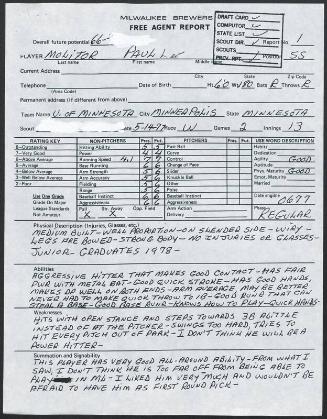 MILWAUKEE BREWERS
FREE AGENT REPORT
DRAFT CARD
COMPUTER
STATE LIST
SCOUT DIR.
SCOUT
PROV. RPT.
Overall future potential 66
Report No. 1
PLAYER MOLITOR PAUL
SS
Last name First name Middle name
Current Address
Street City State Zip Code
Telephone Date of Birth Ht. 6'0 Wt. 180 Bats R Throws R
(Area Code)
Permanent address (if different from above)
Team Name U. OF MINNESOTA City MINNEAPOLIS State MINNESOTA
Scout 5-14-77 Games 2 Innings 13
RATING KEY NON-PITCHERS PITCHERS USE WORD DESCRIPTION
8—Outstanding Hitting Ability Fast Ball Habits
7—Very Good Power Curve Dedication
6—Above Average Running Speed 4.1 Control Agility GOOD
5—Average Base Running Change of Pace Aptitude
4—Below Average Arm Strength Slider Phys. Maturity GOOD
3—Well Below Average Arm Accuracy Knuckle Ball Emot. Maturity
2—Poor Fielding Other Married
Range Poise
Use One Grade Baseball Instinct Baseball Instinct Date eligible
Grade On Major Aggressiveness Aggressiveness 0677
League Standards Pull Str. Away Opp. Field Arm Action Phase
Not Amateur X X Delivery REGULAR
Physical Description (Injuries, Glasses, etc.)
MEDIUM BUILT—WELL PROPORTION—ON SLENDER SIDE—WIRY—
LEGS ARE BOWED—STRONG BODY—NO INJURIES OR GLASSES—
JUNIOR—GRADUATES 1978—
Abilities
AGGRESSIVE HITTER THAT MAKES GOOD CONTACT—HAS FAIR
PWR WITH METAL BAT—GOOD QUICK STROKE—HAS GOOD HANDS
MAKES DP WELL ON BOTH ENDS—ARM AVERAGE MAY BE BETTER
NEVER HAD TO MAKE QUICK THROW TO 1B—GOOD RUNR THAT CAN
STEAL A BASE—GOOD BASE RUNR—KNOWS HOW TO PLAY—QUICK HANDS—
Weaknesses
HITS WITH OPEN STANCE AND STEPS TOWARDS 3B A LITTLE
INSTEAD OF AT THE PITCHER—SWINGS TOO HARD, TRIES TO
HIT EVERY PITCH OUT OF PARK—I DON'T THINK HE WILL BE A
POWER HITTER—
Summation and Signability
THIS PLAYER HAS VERY GOOD ALL-AROUND ABILITY—FROM WHAT I
SAW, I DON'T THINK HE IS TOO FAR OFF FROM BEING ABLE TO
PLAY IN ML—I LIKED HIM VERY MUCH AND WOULDN'T BE
AFRAID TO HAVE HIM AS FIRST ROUND PICK—